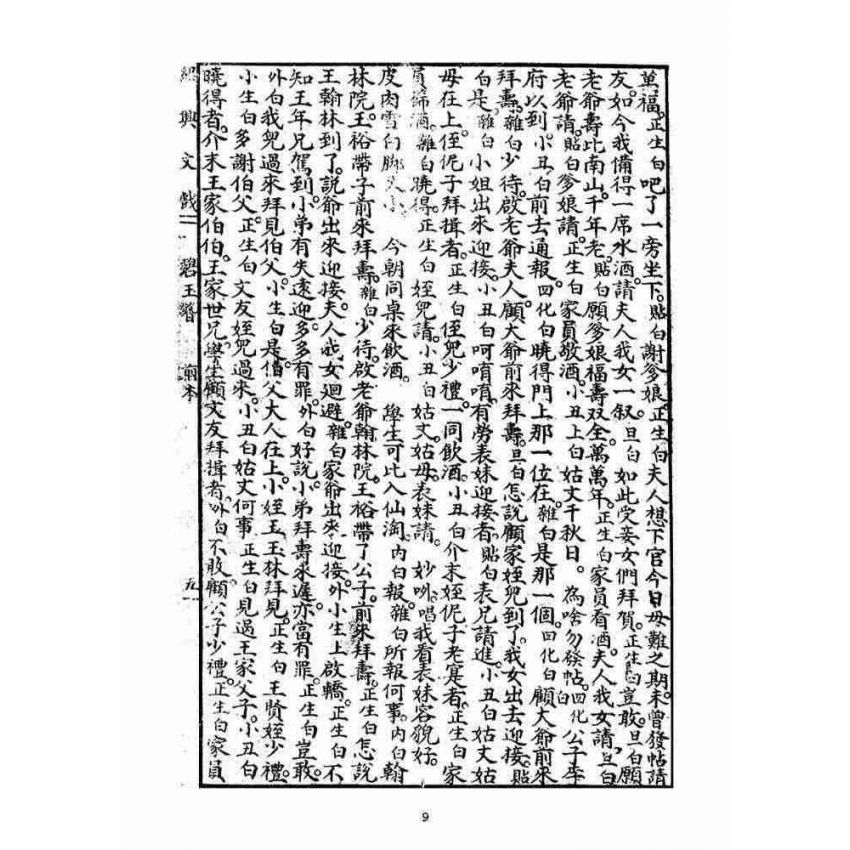 萬福。正生白吧了一旁坐下。貼白謝爹娘正生白夫人想下官今日母難之期。未曾發帖請
友。如今我備得一席水酒。請夫人我女一叙。旦白如此受妾女們拜賀。正生白豈敢。旦白願
老爺壽比南山。千年老。貼白願爹娘福壽双全。萬萬年。正生白家員看酒。夫人我女請。旦白
老爺請。貼白爹娘請。正生白家員敬酒。小丑上白姑丈千秋日。為啥勿發帖。白四化公子來
府以到。小丑白前去通報。四化白曉得門上那一位在。雜白是那一個。四化白顧大爺前來
拜壽。雜白少待。啟老爺夫人。顧大爺前來拜壽。旦白怎說顧家姪兒到了。我女出去迎接。貼
白是。雜白小姐出來迎接。小丑白呵唷唷。有勞表妹迎接者。貼白表兄請進。小丑白姑丈姑
母在上。侄伲子拜揖者。正生白侄兒少禮。一同飲酒。小丑白介末姪伲子老寔者。正生白家
員篩酒。雜白曉得。正生白姪兒請。小丑白姑丈。姑母。表妹請。妙吓唱我看表妹容貌好。
皮肉雪白脚又小今朝同桌來飲酒。學生可比入仙淘。內白報。雜白所報何事。內白翰
林院王裕帶子前來拜壽。雜白少待。啟老爺翰林院。王裕帶了公子。前來拜壽。正生白怎說
王翰林到了。說爺出來迎接。夫人我女廻避。雜白家爺出來迎接。外小生上啟轎。正生白不
知王年兄駕到。小弟有失遠迎。多多有罪。外白好說。小弟拜壽來遲。亦當有罪。正生白豈敢。
外白我兒過來拜見伯父。小生白是。借父大人在上。小姪王玉林拜見。正生白王贤姪少禮。
小生白多謝伯父。正生白文友姪兒過來。小丑白姑丈何事。正生白見過王家父子。小丑白
曉得者。介末王家伯伯。王家世兄。學生顧文友拜揖者。外白不敢。顧公子少禮。正生白家員
紹興文戲 碧玉簪 前本 九
9